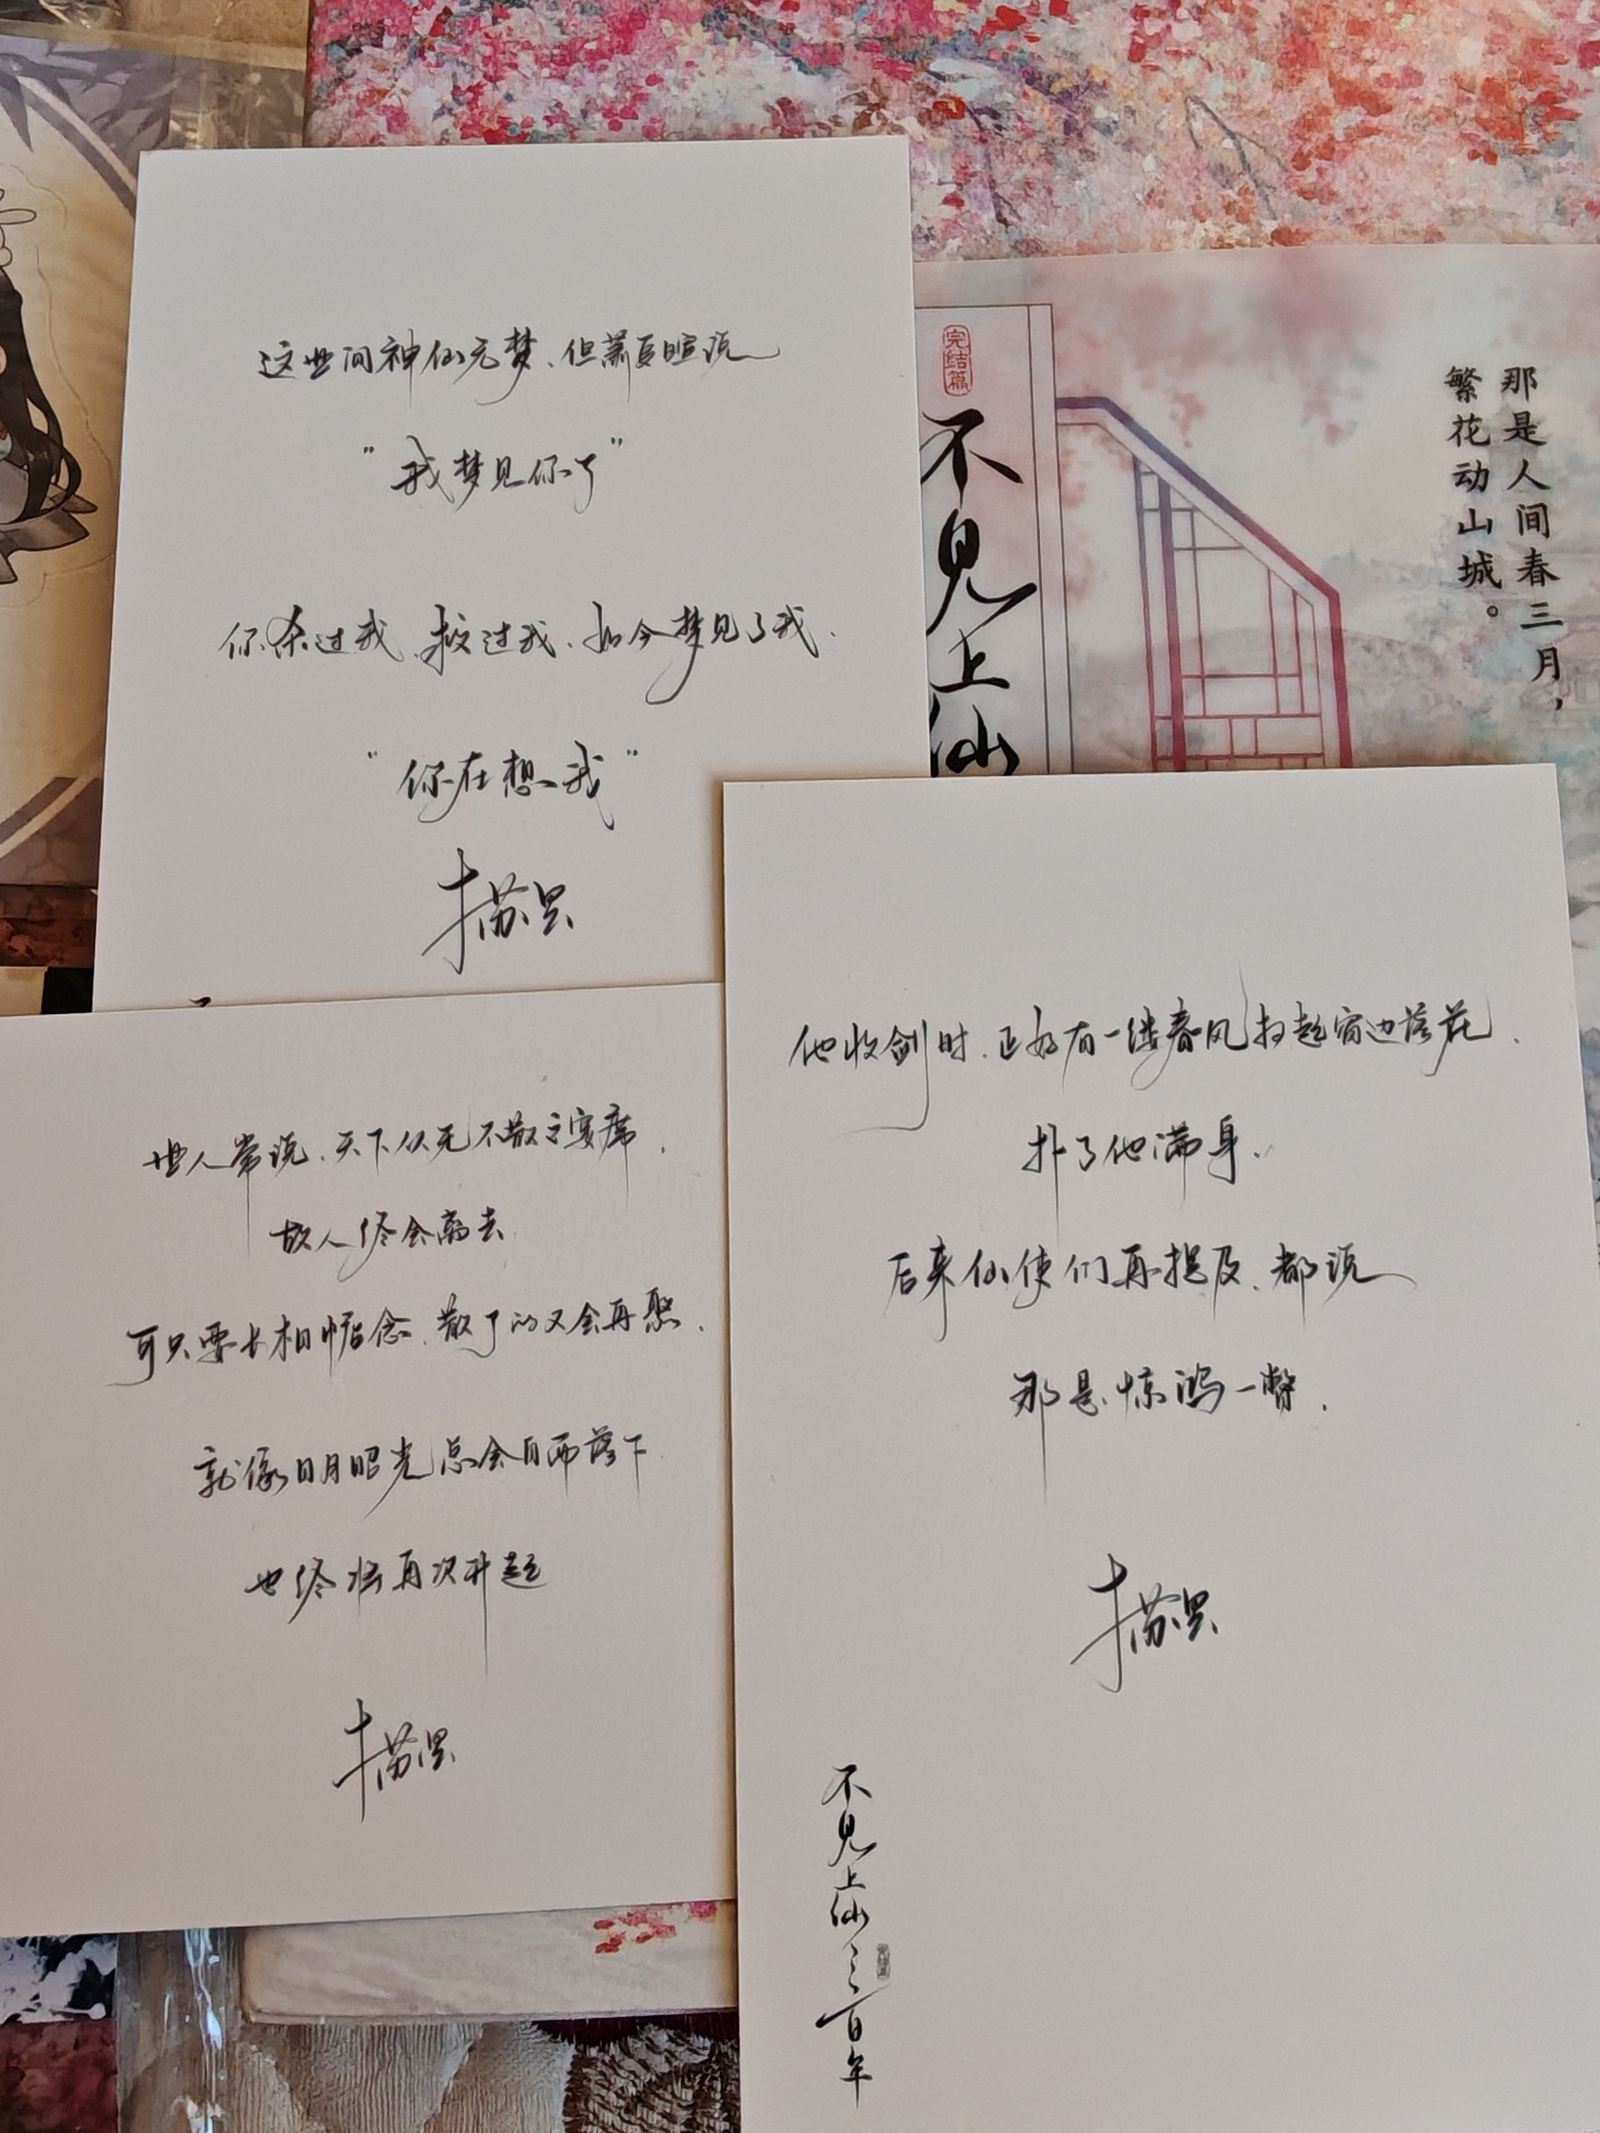 这世间神仙无梦、但萧复暄说
"我梦见你了"
你杀过我、救过我、如今梦见了我.
"你在想我"
木苏里
完结篇
不见上仙
那是人间春三月，
繁花动山城。
世人常说、天下从无不散之宴席.
故人终会离去
可只要长相惦念、散了的又会再聚.
就像日月昭光总会自西落下
也终将再次升起
木苏里
他收剑时、正好有一缕春风扫起窗边落花.
扑了他满身.
后来仙使们再提及、都说
那是惊鸿一瞥.
木苏里
不见上仙三百年